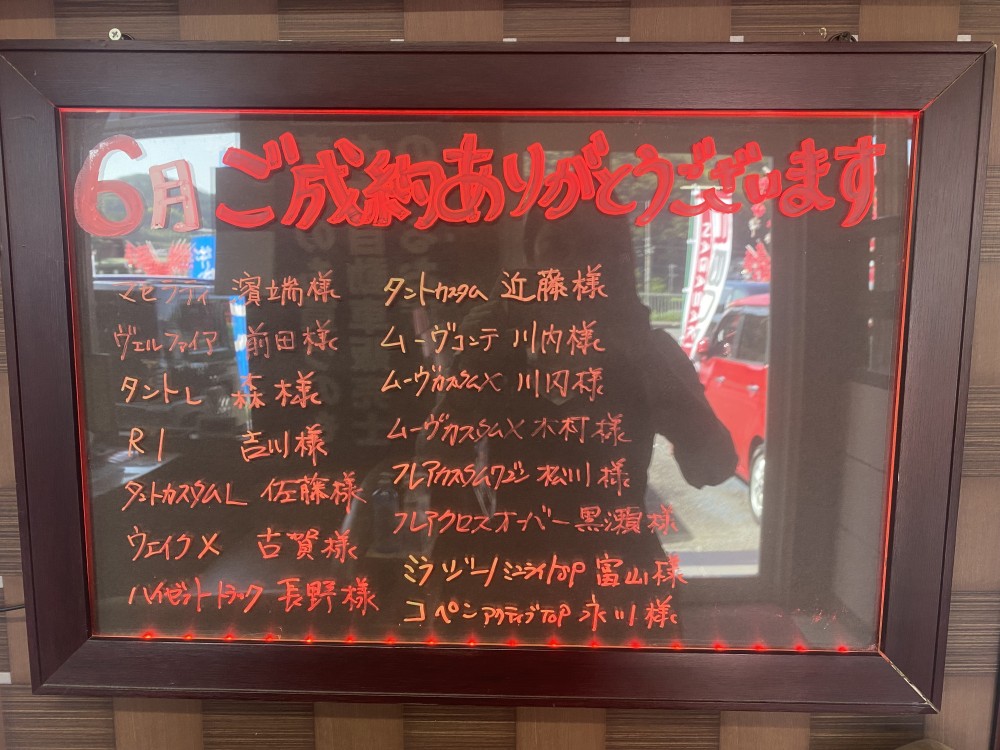 6月 ご成約ありがとうございます
マセラティ 濵端様
ヴェルファイア 前田様
タントL 森様
R1 吉川様
タントカスタムL 佐藤様
ウェイクX 古賀様
ハイゼットトラック 長野様
タントカスタム 近藤様
ムーヴコンテ 川内様
ムーヴカスタムX 川内様
ムーヴカスタムX 木村様
フレアカスタムワゴン 松川様
フレアクロスオーバー 黒瀬様
ミラジーノミニライトSP 富山様
コペンアクティブTOP 氷川様